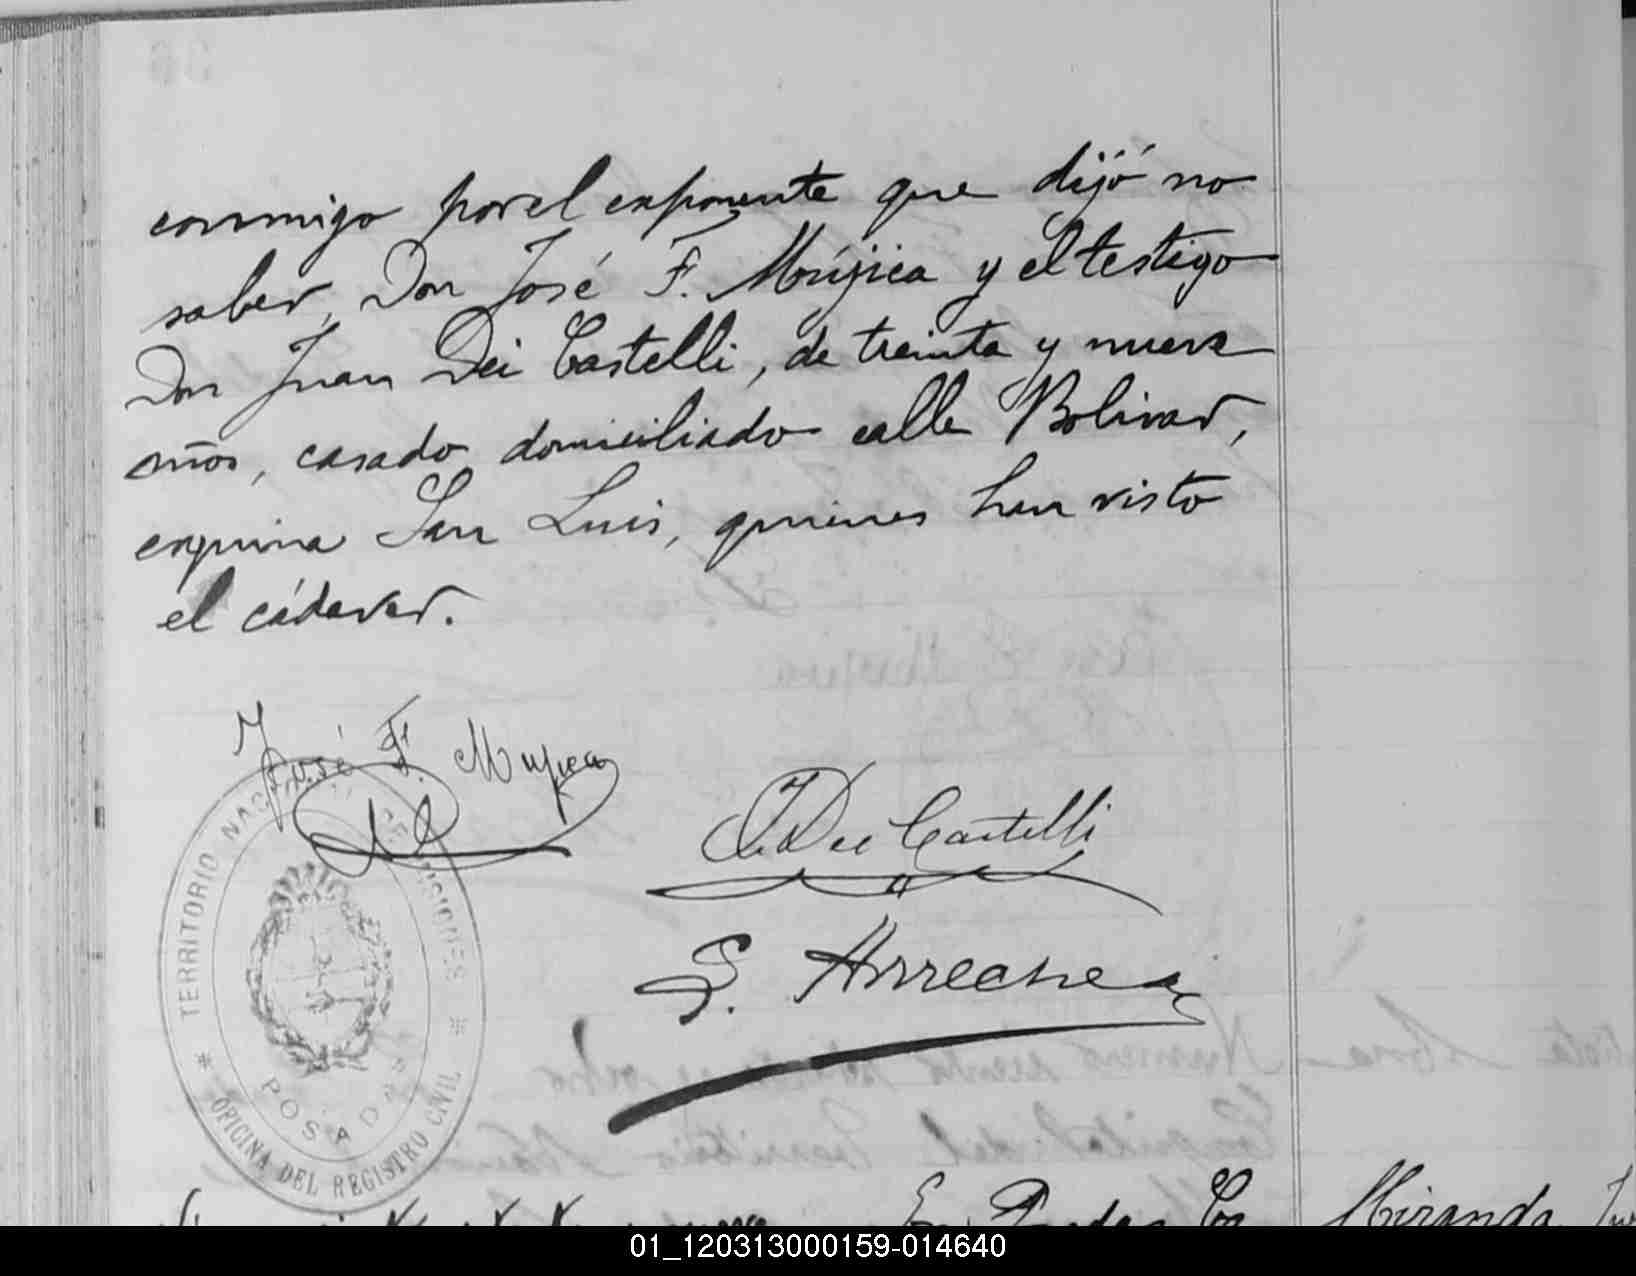 conmigo por el exponente que dijó no
saber, Don José F. Mújica y el testigo
Don Juan Dei Castelli, de treinta y nueve
años, casado, domiciliado calle Bolivar,
esquina San Luis, quienes han visto
el cádaver.
José F. Mujica
J. Dei Castelli
G. Arrechea
TERRITORIO NACIONAL DE MISIONES
POSADAS
OFICINA DEL REGISTRO CIVIL
En Posadas Ca
Miranda
01_120313000159-014640